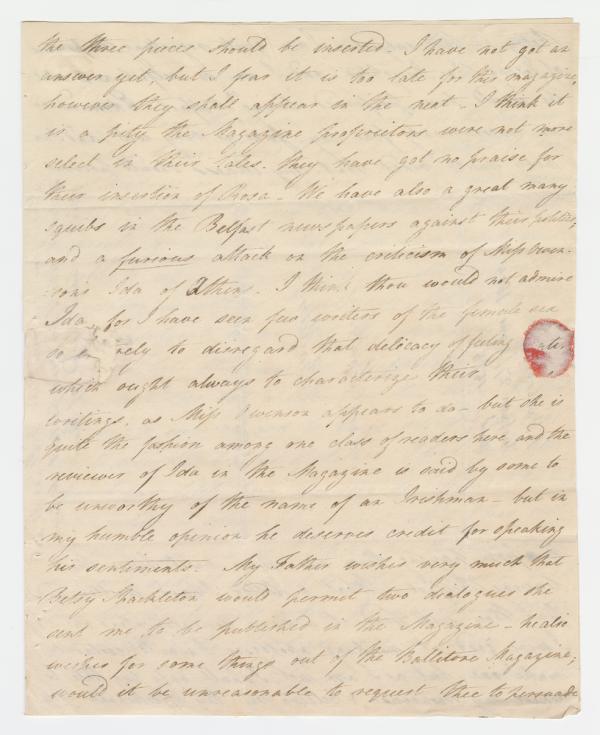 the three pieces should be inserted - I have not got an
answer yet, but I fear it is too late for this magazine,
however they shall appear in the next - I think it
is a pity the Magazine proprietors were not more
select in their tales. they have got no praise for
their insertion of Rosa - We have also a great many
squibs in the Belfast newspapers against their politics,
and a furious attack on the criticism of Miss Owen-
-son's Ida of Athens. I think thou would not admire
Ida, for I have seen few writers of the female sex
so to disregard that delicacy of feeling
which ought always to characterize their
writings, as Miss Owenson appears to do - but she is
quite the fashion among one class of readers here, and the
reviewer of Ida in the Magazine is said by some to
be unworthy of the name of an Irishman - but in
my humble opinion he deserves credit for speaking
his sentiments - My Father wishes very much that
Betsy Shackleton would permit two dialogues she
sent me to be published in the Magazine - he also
wishes for some things out of the Ballitore Magazine;
would it be unreasonable to request thee to persuade